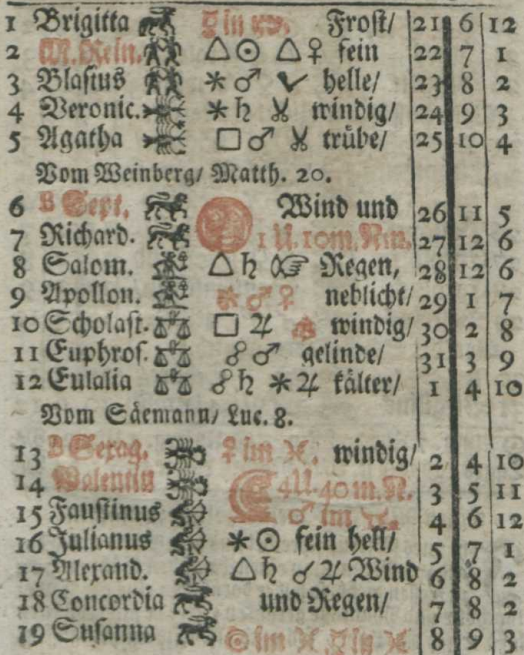 1 Brigitta ☿ in Frost/ 21 6 12
2 M. Rein. △☉ △♀ fein 22 7 1
3 Blasius ⚹♂ helle/ 23 8 2
4 Veronic. ⚹♄ windig/ 24 9 3
5 Agatha □♂ trübe/ 25 10 4
Vom Weinberg/ Matth. 20.
6 B Sept. Wind und 26 11 5
7 Richard. 1 U. 10m. Nm. 27 12 6
8 Salom. △♄ Regen, 28 12 6
9 Apollon. ⚹♂♀ neblicht/ 29 1 7
10 Scholast. □♃ windig/ 30 2 8
11 Euphros. ☍♂ gelinde/ 31 3 9
12 Eulalia ☍♄ ⚹♃ kälter/ 1 4 10
Vom Säemann/ Luc. 8.
13 B Sexag. ♀ im ♓. windig/ 2 4 10
14 Valentin 4U. 40m. N. 3 5 11
15 Faustinus ♂ im 4 6 12
16 Julianus ⚹☉ fein hell/ 5 7 1
17 Alexand. △♄ ☌♃ Wind 6 8 2
18 Concordia und Regen/ 7 8 2
19 Susanna ☉ im ♓. ♓ 8 9 3